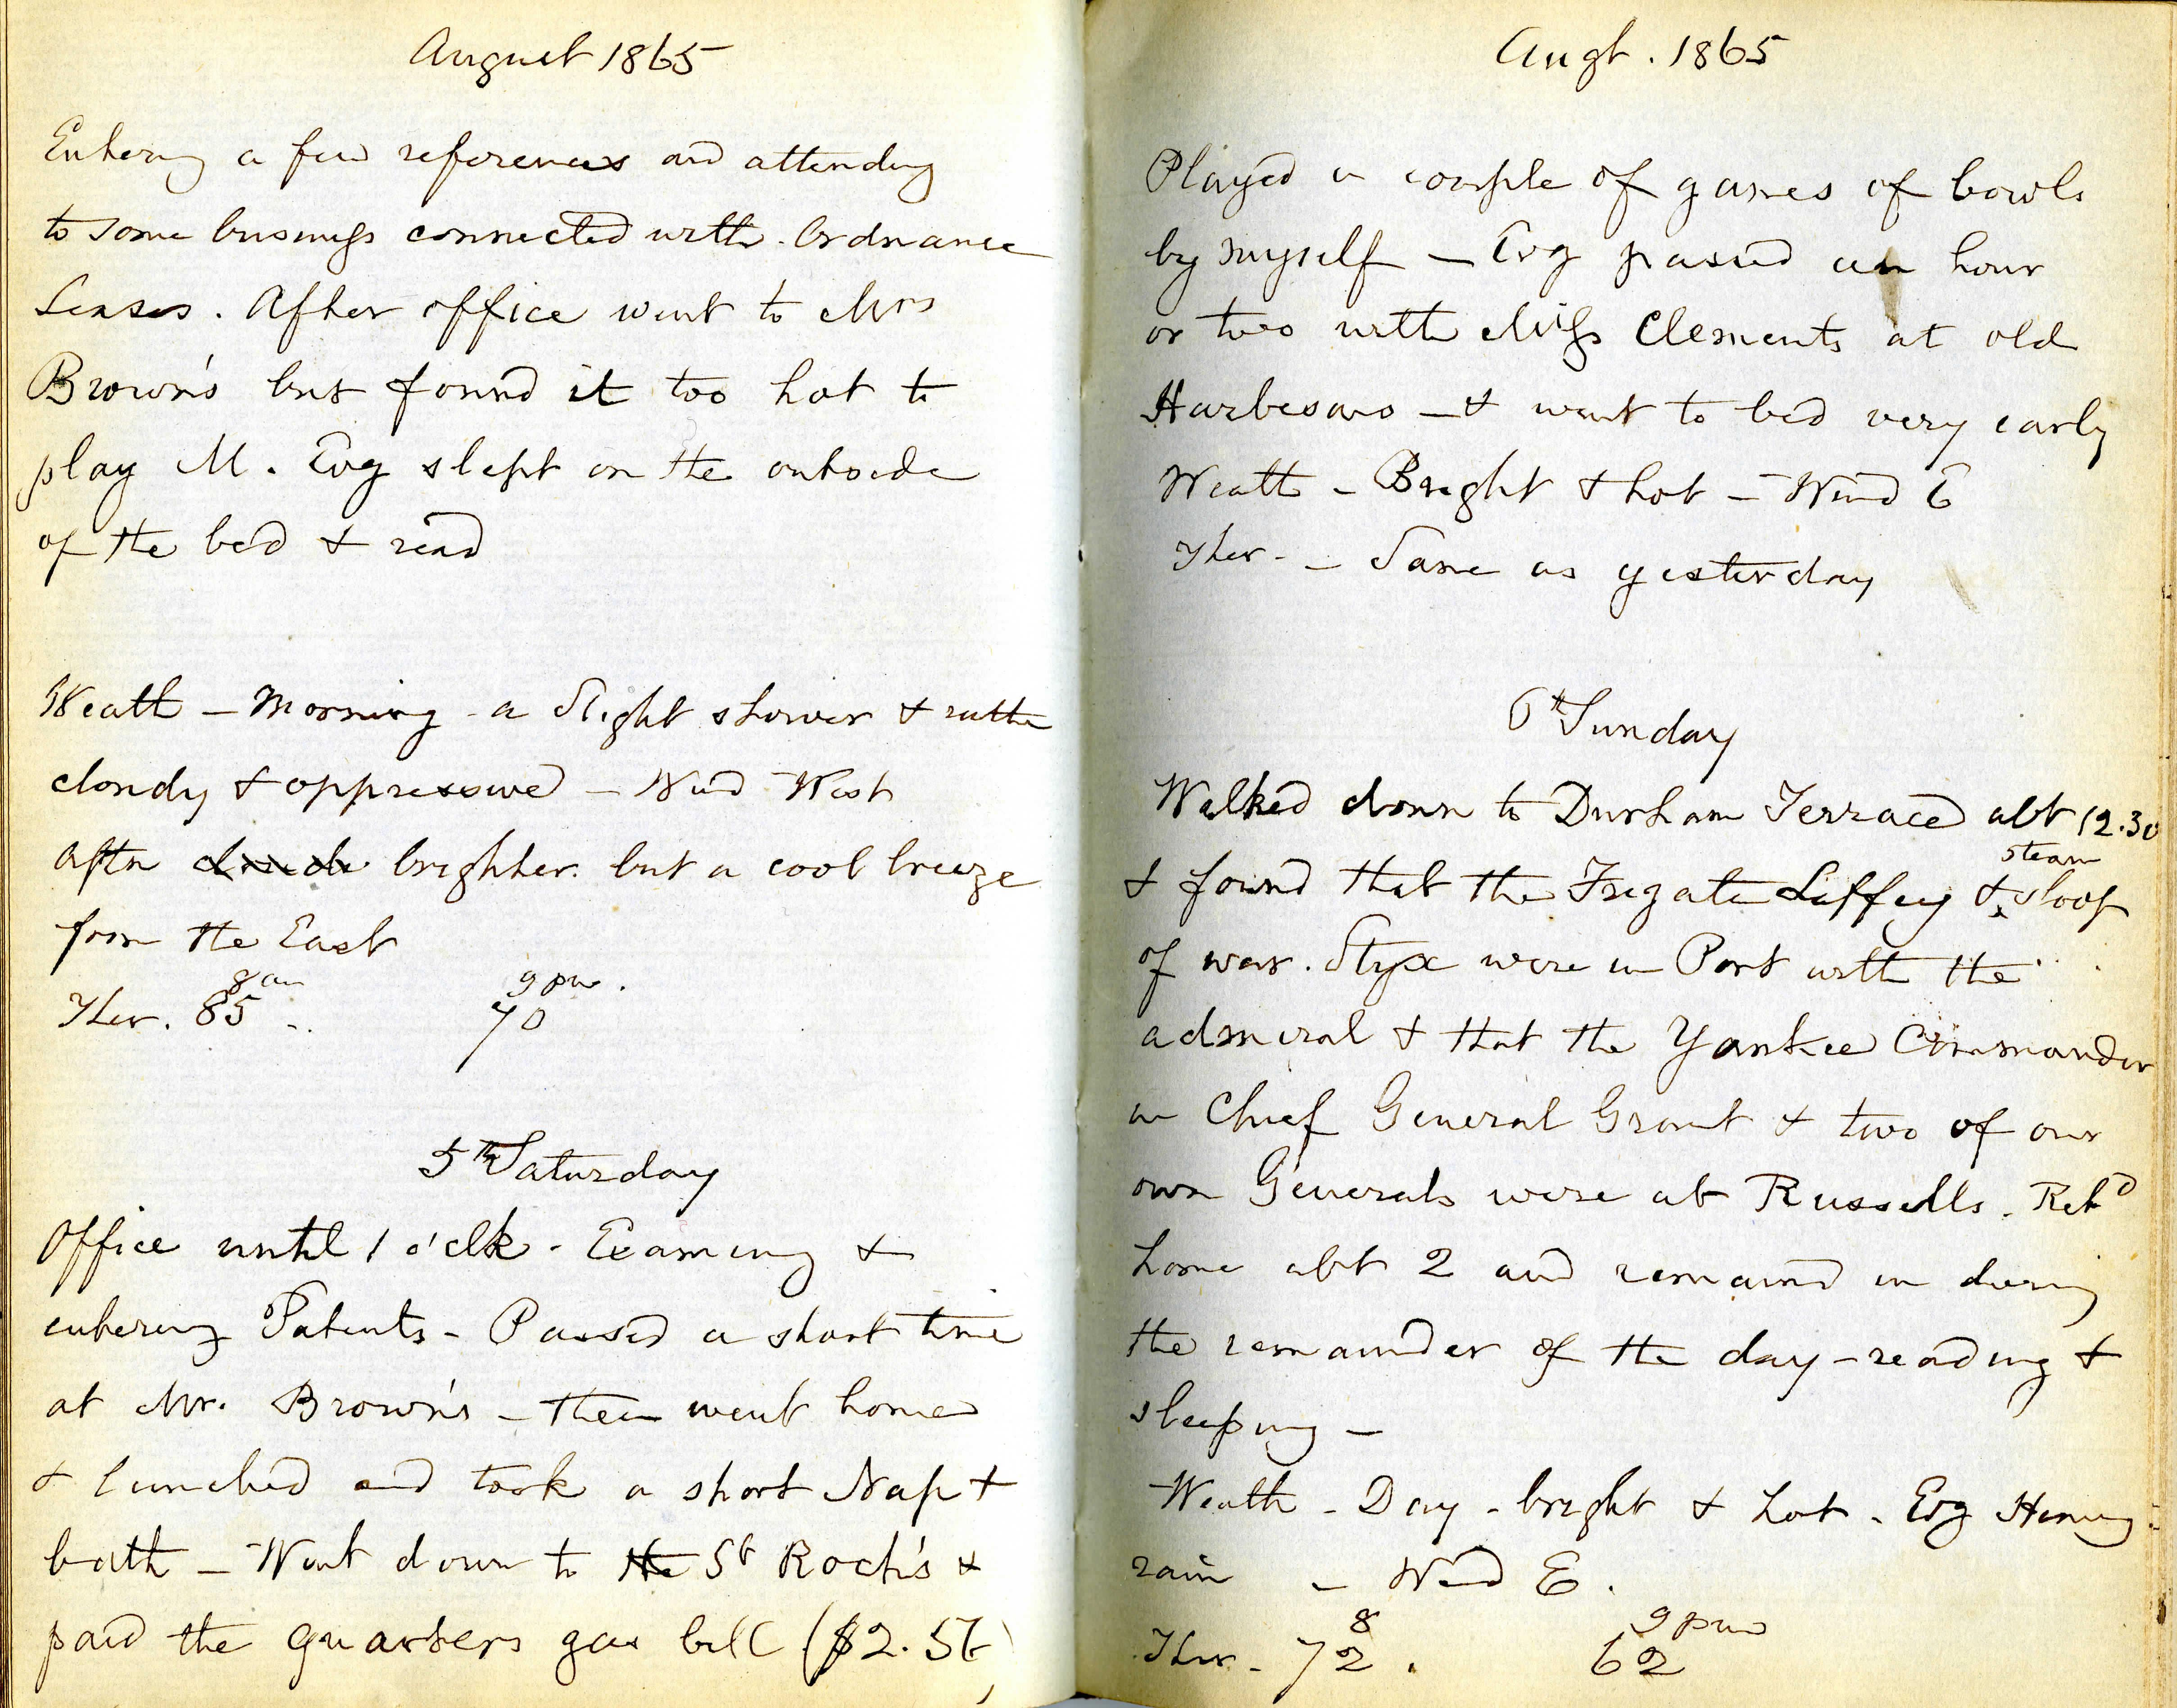 August 1865
Entering a few references and attending
to some business connected with Ordnance
Leases. After office went to Mrs
Brown's but found it too hot to
play M. Evg slept on the outside
of the bed & read
Weath - Morning - a slight shower & rather
cloudy & oppressive - Wind West
Aftn brighter but a cool breeze
from the East
8 am 9 pm.
Ther. 85 70
5th Saturday
Office until 1 o'clk - Examing &
entering Patents - Passed a short time
at Mr. Brown's - then went home
& lunched and took a short Nap &
bath - Went down to the St Roch's &
paid the quarters gas bill ($2.
Augt. 1865
Played a couple of games of bowls
by myself - Evg passed an hour
or two with Miss Clements at old
- & went to bed very early
Weath - Bright & hot - Wind E
Ther - Same as yesterday
6th Sunday
Walked down to Durham Terrace abt 12.30
& found that the Frigate Liffey & steam sloop
of war. Styx were in Port with the
admiral & that the Yankee Commander
in Chief General Grant & two of our
own Generals were at Russells. Retd
home abt 2 and remaind in during
the remainder of the day - reading &
sleeping -
Weath - Day - bright & hot - Evg
rain - Wind E.
8 9 pm
Ther - 72. 62